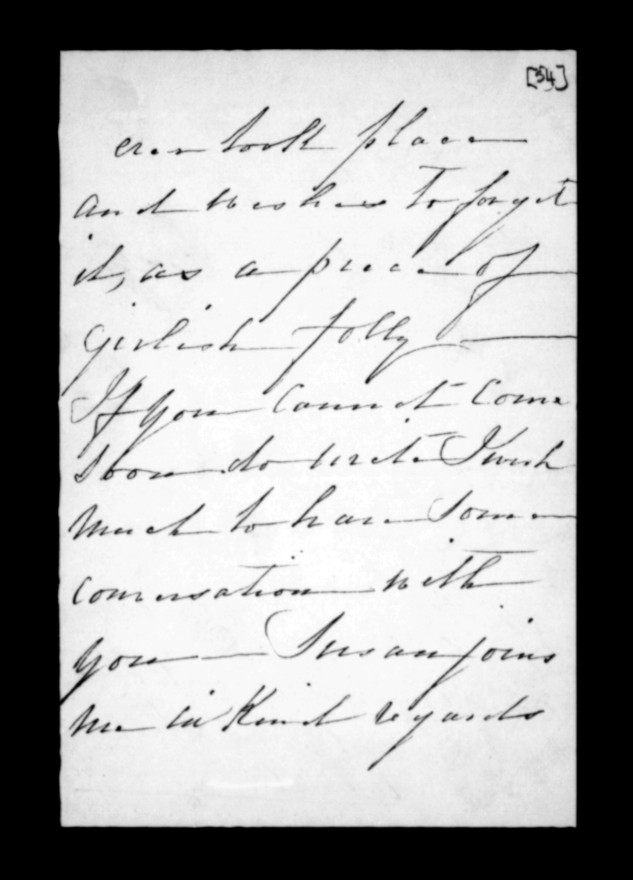 [34]
ever took place
and wishes to forget
it, as a piece of
girlish folly —
If you cannot come
soon do write I wish
much to have some
conversation with
you — Susan joins
me in kind regards